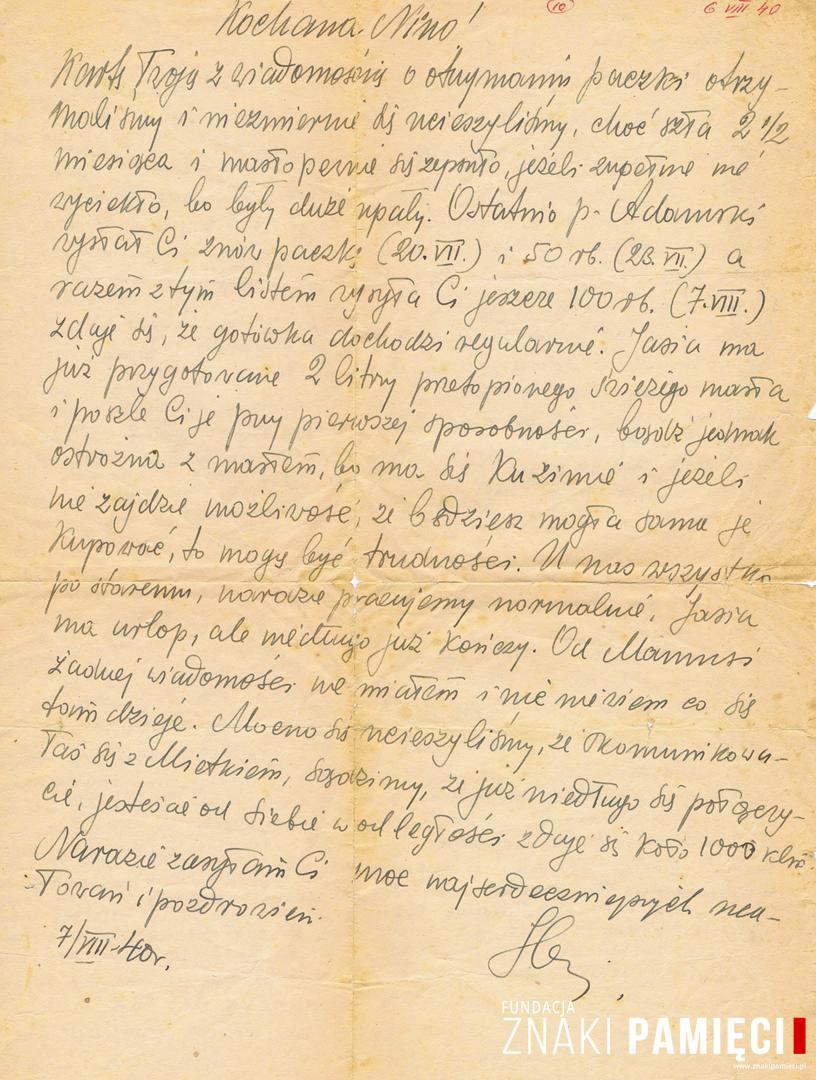 Kochana Nino!
10
6 VIII 40
Kartę Twoją z wiadomością o otrzymaniu paczki otrzy-
maliśmy i niezmiernie się ucieszyliśmy, choć szła 2 1/2
miesiąca i masło pewnie się zepsuło, jeżeli zupełnie nie
wyciekło, bo były duże upały. Ostatnio p. Adamski
wysłał Ci znów paczkę (20.VII.) i 50 rb. (23.VII.) a
razem z tym listem wysyła Ci jeszcze 100 rb. (7.VIII.)
zdaje się, że gotówka dochodzi regularnie. Jasia ma
już przygotowane 2 litry pretopionego świeżego masła
i poszle Ci je przy pierwszej sposobności, bądź jednak
ostrożna z masłem, bo ma się ku zimie i jeżeli
nie zajdzie możliwość, że będziesz mogła sama je
kupować, to mogą być trudności. U nas wszystko
po staremu, narazie pracujemy normalnie, Jasia
ma urlop, ale niedługo już kończy. Od Mamusi
żadnej wiadomości nie miałem i nie wiem co się
tam dzieje. Mocno się ucieszyliśmy, że skomunikowa-
łaś się z Mietkiem, sądzimy, że już niedługo się połączy-
cie, jesteście od siebie w odległości zdaje się koło 1000 klm.
Narazie zasyłam Ci moc najserdeczniejszych uca-
łowań i pozdrowień.
7/VIII-40r.
FUNDACJA
ZNAKI PAMIĘCI
www.znakipamieci.pl